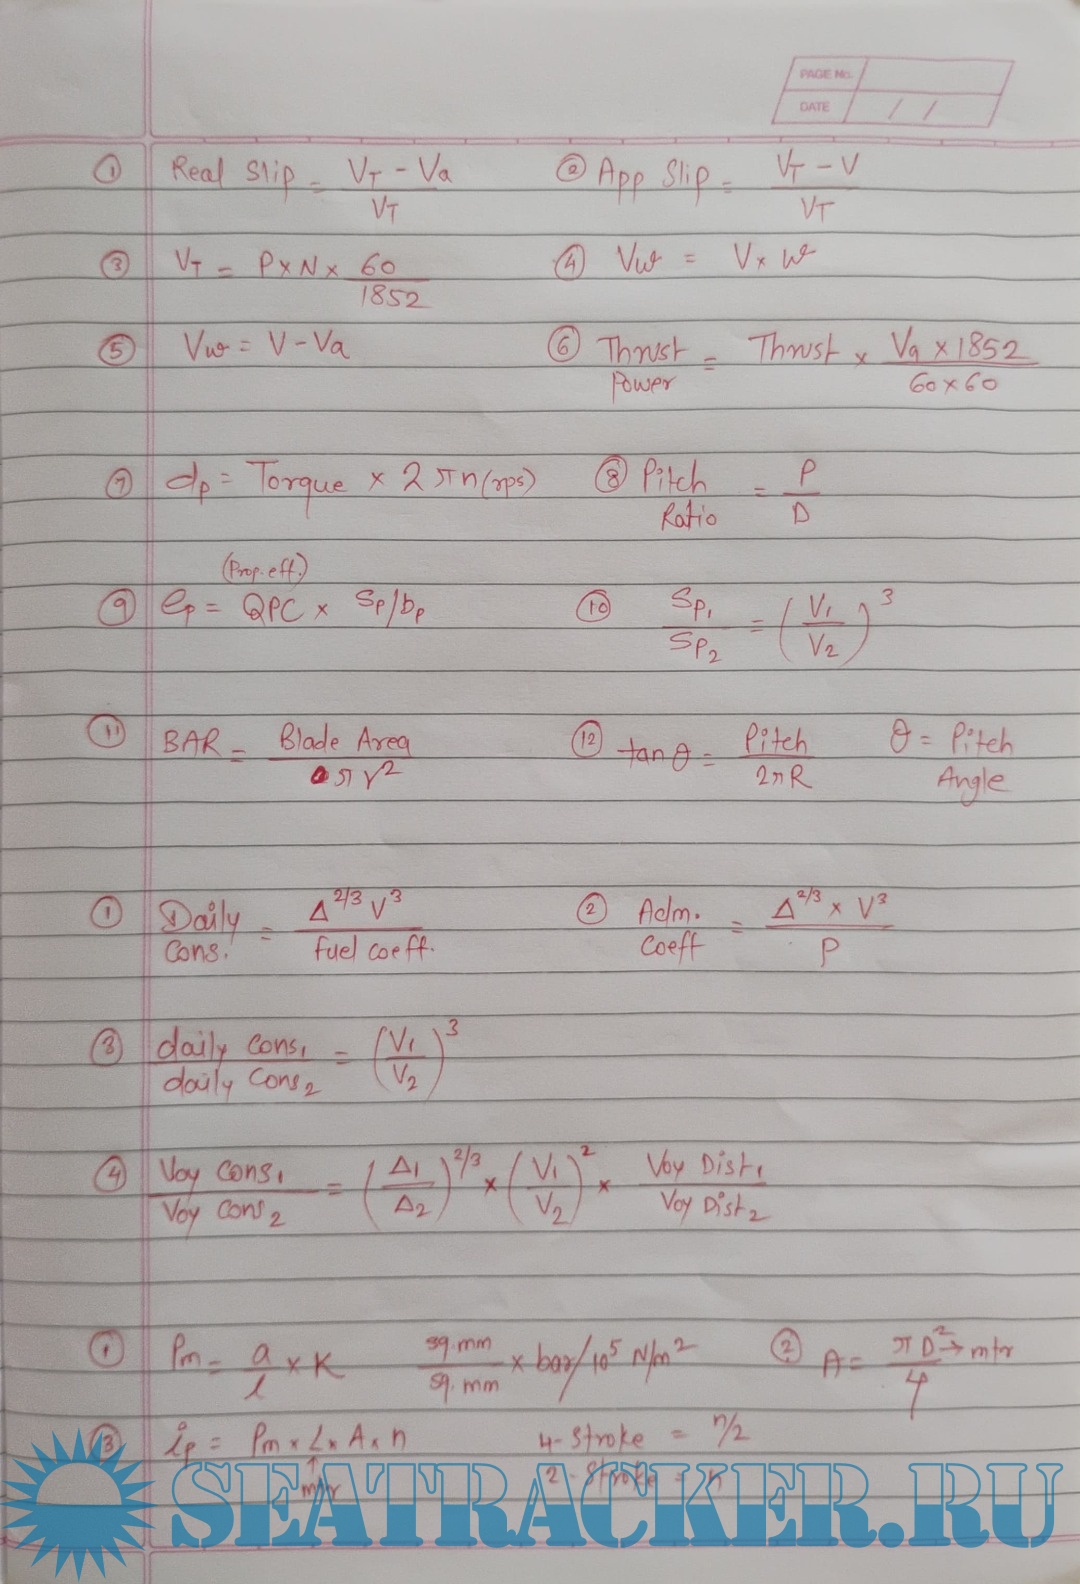 PAGE No.
DATE / /
① Real Slip = (V_T - Va) / V_T ② App Slip = (V_T - V) / V_T
③ V_T = P × N × 60/1852 ④ Vw = V × w
⑤ Vw = V - Va ⑥ Thrust Power = Thrust × (Va × 1852) / (60 × 60)
⑦ dp = Torque × 2πn(rps) ⑧ Pitch Ratio = P/D
(Prop. eff.)
⑨ ep = QPC × Sp/bp ⑩ Sp₁/Sp₂ = (V₁/V₂)³
⑪ BAR = Blade Area / πr² ⑫ tan θ = Pitch / 2πR θ = Pitch Angle
① Daily Cons. = Δ^2/3 V³ / fuel coeff. ② Adm. Coeff = Δ^2/3 × V³ / P
③ daily Cons₁ / daily Cons₂ = (V₁/V₂)³
④ Voy Cons₁ / Voy Cons₂ = (Δ₁/Δ₂)^2/3 × (V₁/V₂)² × Voy Dist₁ / Voy Dist₂
① Pm = a/l × K sq.mm / sq.mm × bar/10⁵ N/m² ② A = πD² → mtr / 4
③ ip = Pm × L × A × n 4-Stroke = n/2
mtr 2-Stroke = n
SEATRACKER.RU